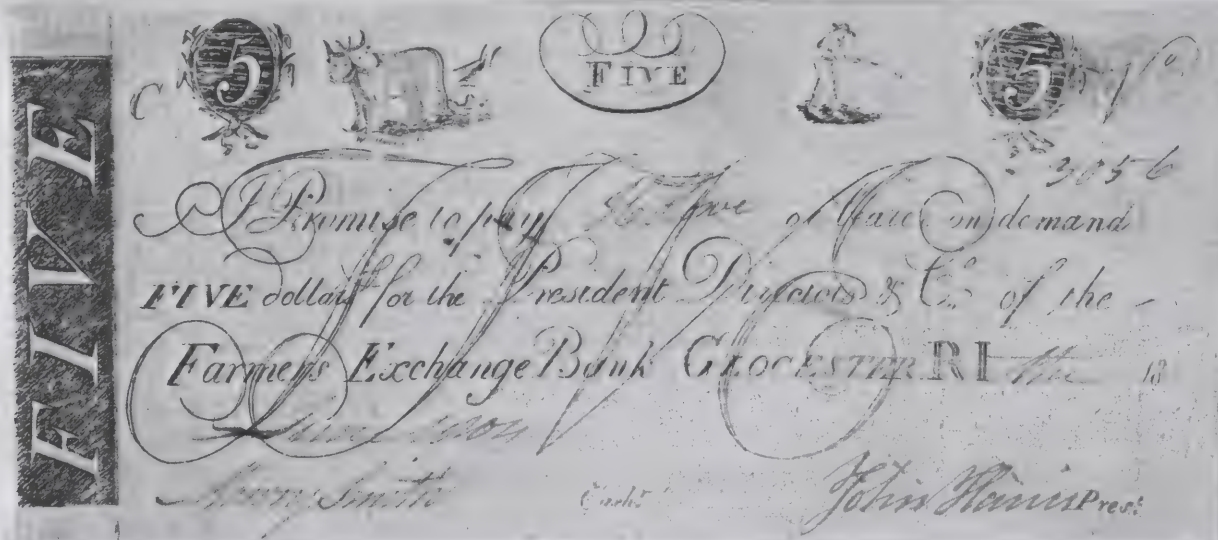 FIVE
C 5 FIVE 5 No
3056
I Promise to pay or Bearer on demand
FIVE dollars for the President Directors & Co. of the
Farmers Exchange Bank GLOCESTER RI
Smith Cashr. John Harris Prest